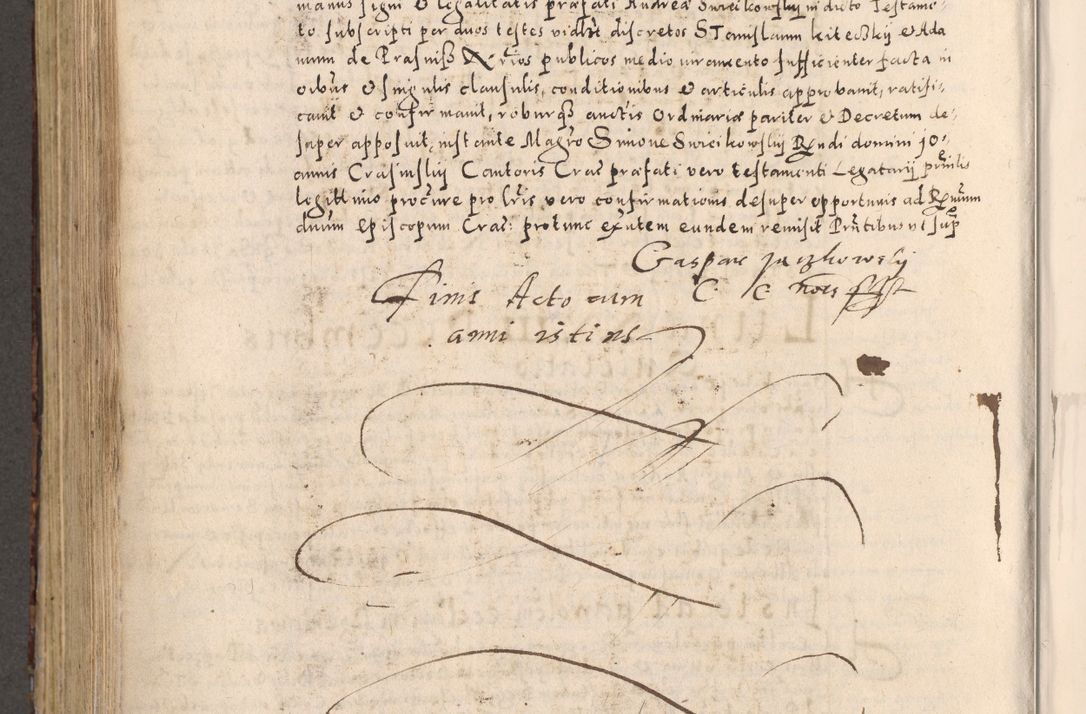 manus signi & legalitatis præfati Andreæ Swiecikowskij in dicto Testame-
to subscripti per duos testes vidlt discretos Stanislaum kiteckij & Ada
mum de Prasniß Nrios publicos medio iuramento sufficienter facta in
oibus & singulis clausulis, conditionibus & articulis approbavit, ratifi-
cavit & confirmavit, roburqz auctis Ordinariæ pariter & Decretum de-
super apposuit, instante Magro Simone Swiecikowskij Rndi domini Jo-
annis Crasinskij Cantoris Crac præfati vero testamenti Legatarij
legittimo procure pro lris vero confirmationis desuper opportunis ad Rnum
dnum Episcopum Crac: protunc extem eundem remisit Pntibus vt sup
Gaspar
Finis Actorum C C nots ssst
anni istius